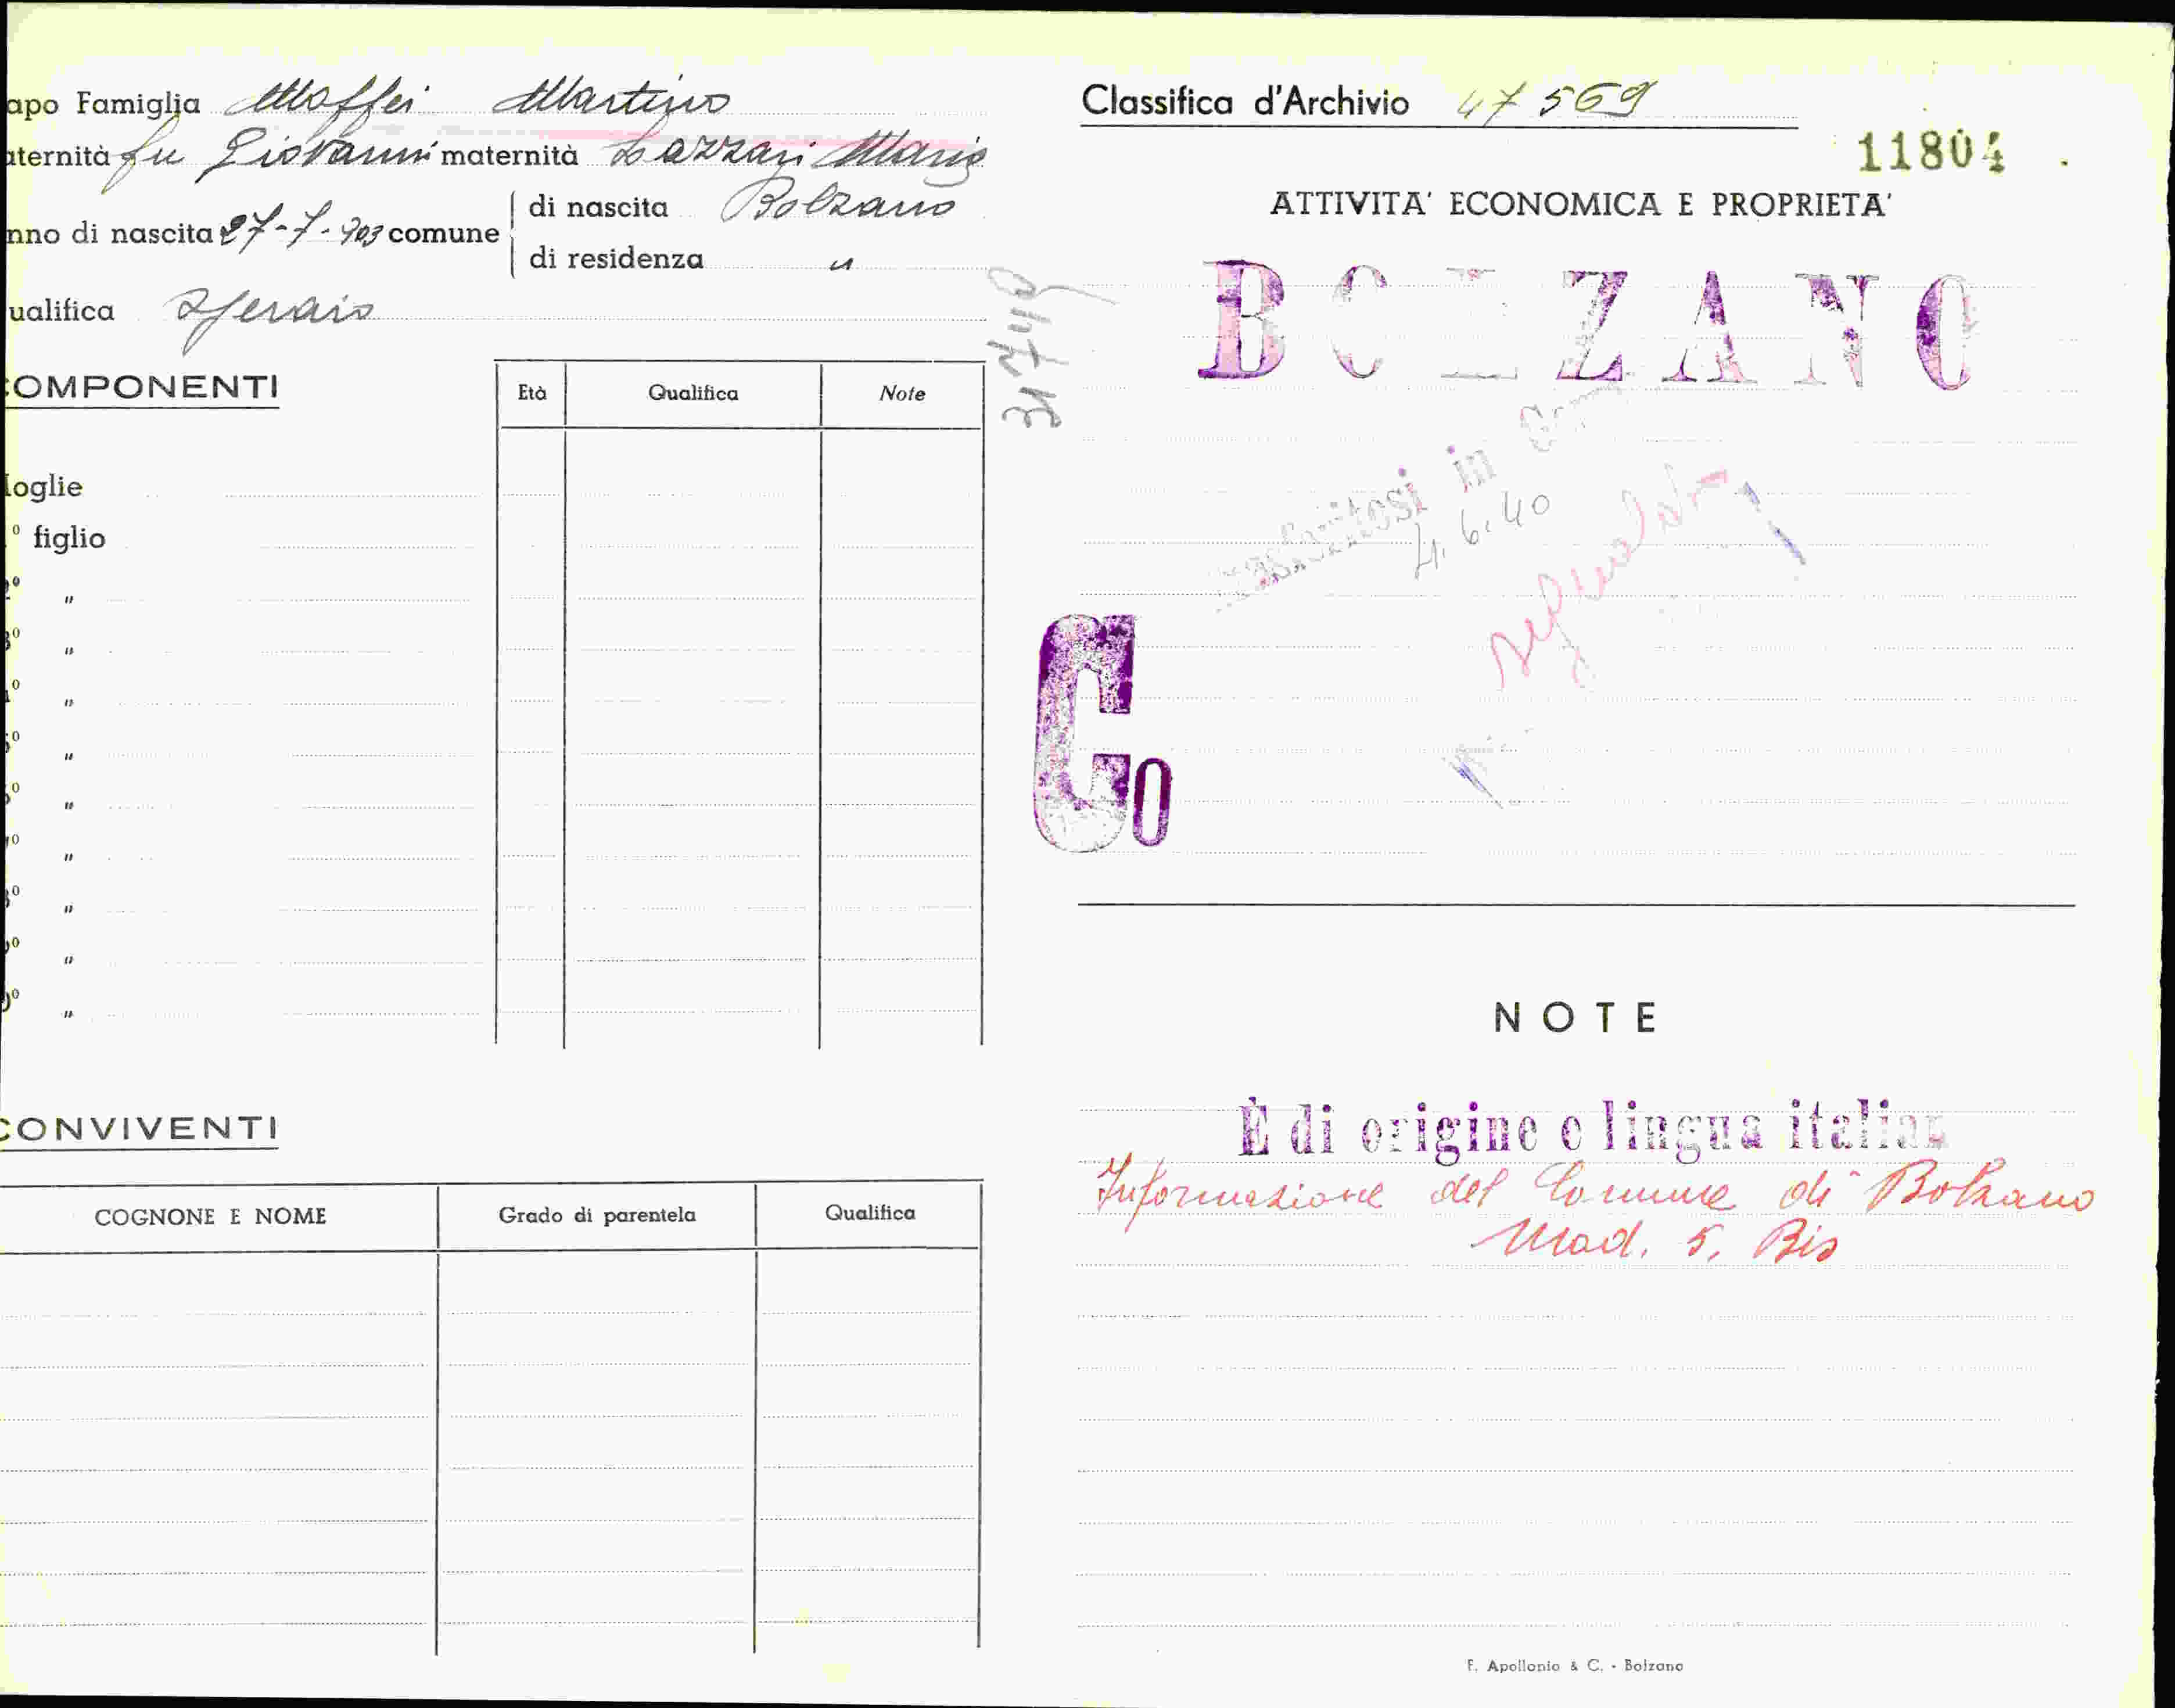 apo Famiglia Maffei Martino
aternità fu Giovanni maternità Lazzari Maria
nno di nascita 27-7-903 comune di nascita Bolzano
di residenza "
ualifica Operaio
COMPONENTI
Età Qualifica Note
oglie
º figlio
2º "
3º "
4º "
5º "
6º "
7º "
8º "
9º "
0º "
CONVIVENTI
COGNONE E NOME Grado di parentela Qualifica
Classifica d'Archivio 47569
11804
ATTIVITA' ECONOMICA E PROPRIETA'
BOLZANO
in
4.6.40
Co
NOTE
È di origine e lingua italian
Informazione del Comune di Bolzano
Mod. 5. Bis
F. Apollonio & C. - Bolzano